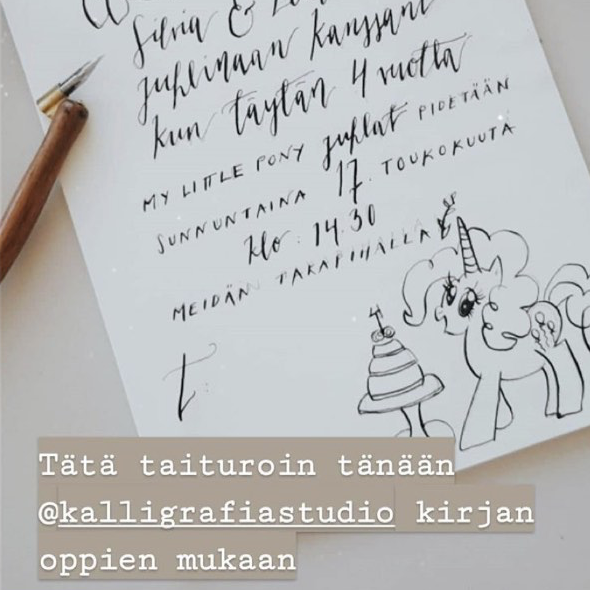 Silvia &
juhlimaan kanssani
kun täytän 4 vuotta
MY LITTLE PONY juhlat PIDETÄÄN
SUNNUNTAINA 17. TOUKOKUUTA
klo: 14.30
MEIDÄN TAKAPIHALLA
T:
4
Tätä taituroin tänään
@kalligrafiastudio kirjan
oppien mukaan